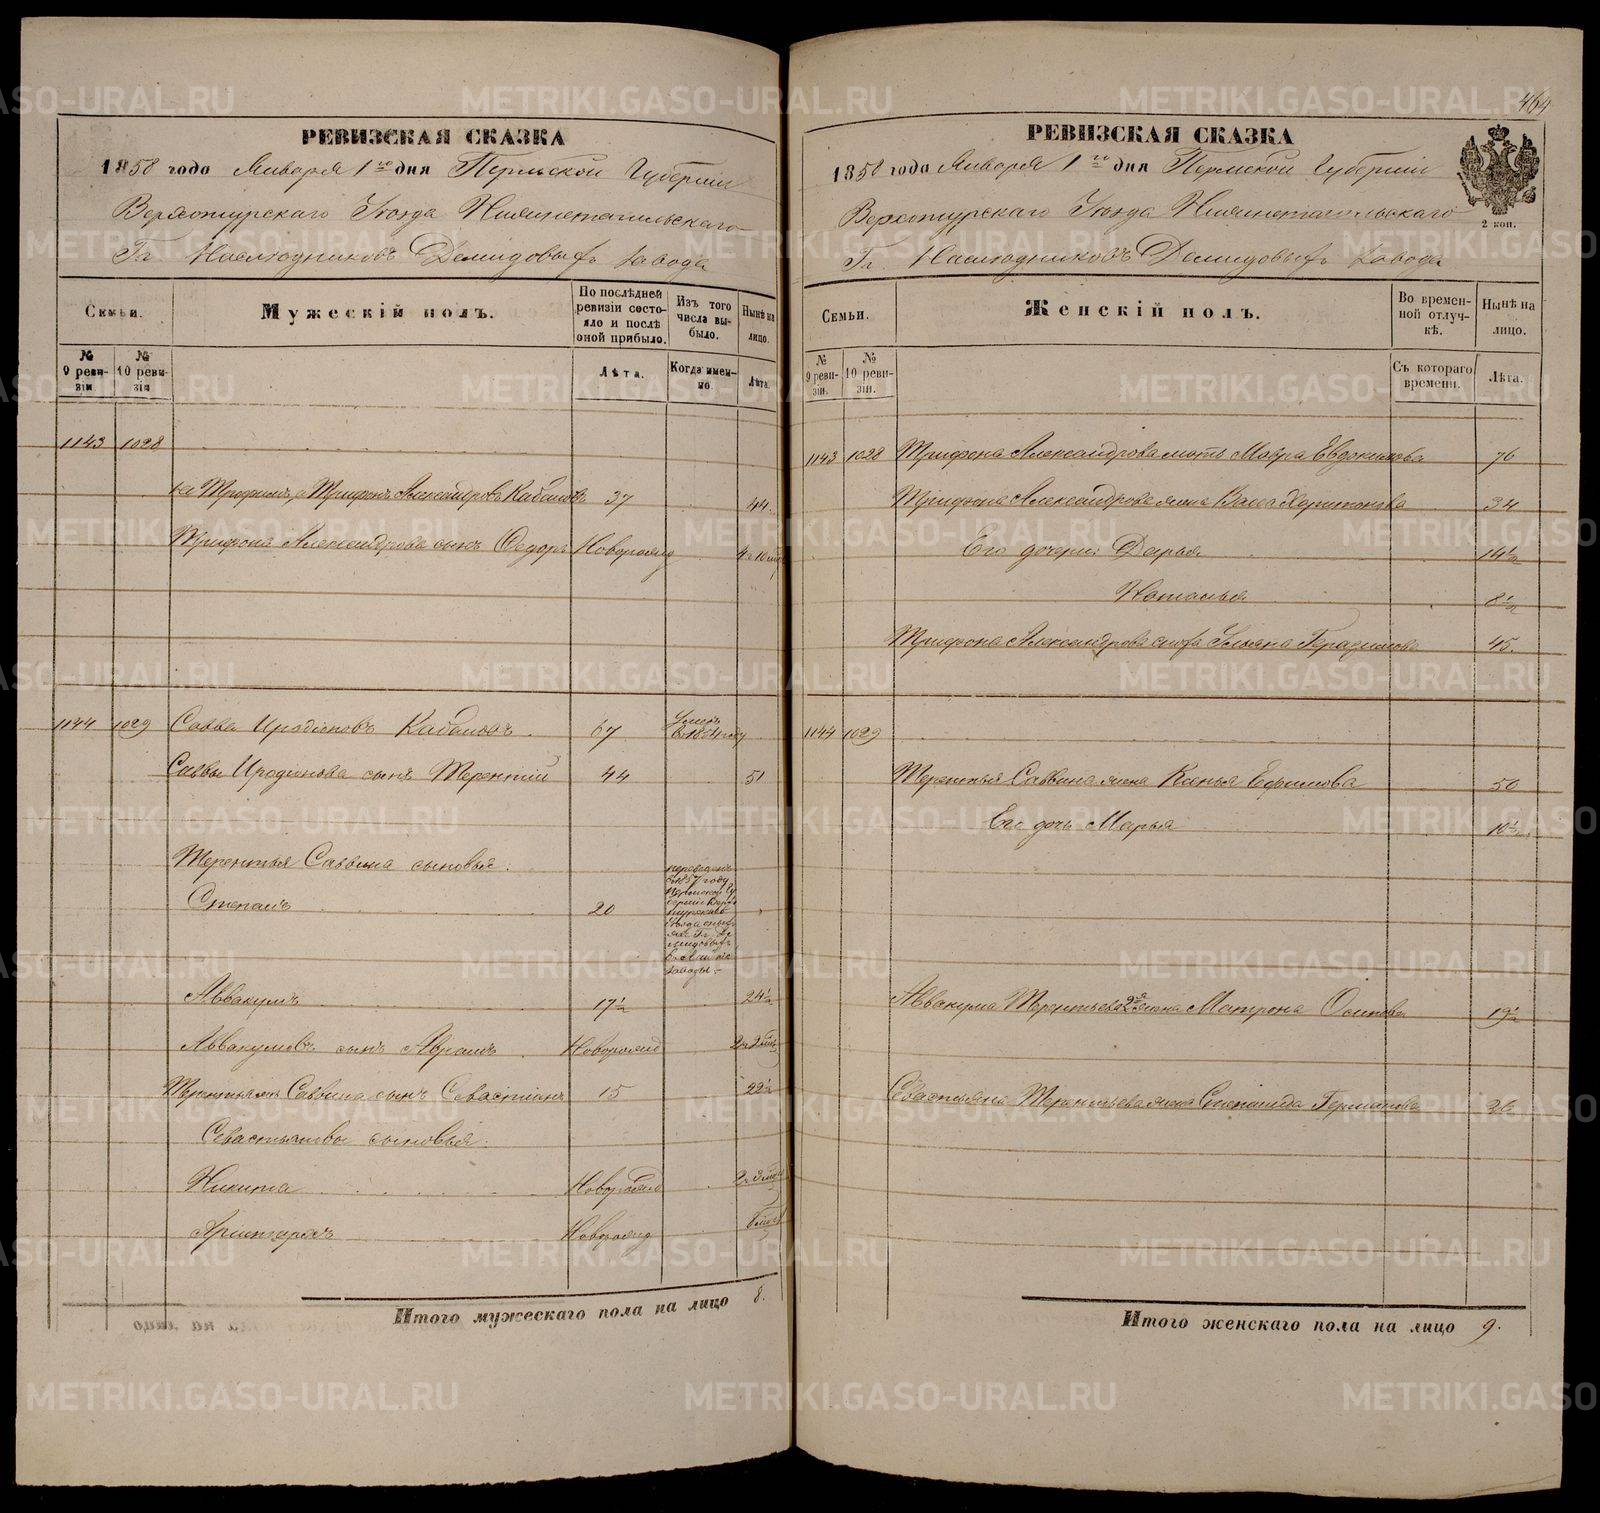 РЕВИЗСКАЯ СКАЗКА
1858 года Января 1го дня Пермской Губерніи
Верхотурскаго Уѣзда Нижнетагильскаго
Гг. Наслѣдниковъ Демидовыхъ Завода
Семьи.
Мужескій полъ.
По послѣдней ревизіи состояло и послѣ оной прибыло.
Изъ того числа выбыло.
Нынѣ на лицо.
№ 9 ревизіи
№ 10 ревизіи
Лѣта.
Когда именно.
Лѣта.
1143 1028
Трифонъ Александровъ Кабановъ 37 44.
Трифона Александрова сынъ Федоръ Новорожд
1144 1029 Савва Иродіоновъ Кабановъ 67 Умеръ
Саввы Иродионова сынъ Терентій 44 51
Терентья Саввина сыновья:
Степанъ 20 переведенъ
въ 1857 году
Пермской Гу
берніи Верхо
турскаго
Уѣзда
Гг. Де
мидовыхъ
заводы.
Аввакумъ 17½ 24½
Аввакумовъ сынъ Авраамъ Новорожд
Терентья Саввина сынъ Севастіанъ 15 22½
Севастьяновы сыновья:
Никита Новорожд
Аристархъ Новорожд
Итого мужескаго пола на лицо 8.
464
РЕВИЗСКАЯ СКАЗКА
1858 года Января 1го дня Пермской Губерніи
Верхотурскаго Уѣзда Нижнетагильскаго
Гг. Наслѣдниковъ Демидовыхъ Завода
2 коп.
Семьи.
Женскій полъ.
Во временной отлучкѣ.
Нынѣ на лицо.
№ 9 ревизіи.
№ 10 ревизіи.
Съ котораго времени.
Лѣта.
1143 1028 Трифона Александрова мать Мавра Евдокимова 76
Трифона Александрова жена Васса Харитонова 34
Его дочери: Дарья 14½
Наталья 8½
Трифона Александрова Ульяна Герасимова 45.
1144 1029
Терентья Саввина жена Ксенья Ефимова 50
Его дочь Марья 10½
Аввакума Терентьева 2я жена Матрона Осипова 19½
Севастьяна Терентьева жена Степанида Германова 26
Итого женскаго пола на лицо 9.
METRIKI.GASO-URAL.RU